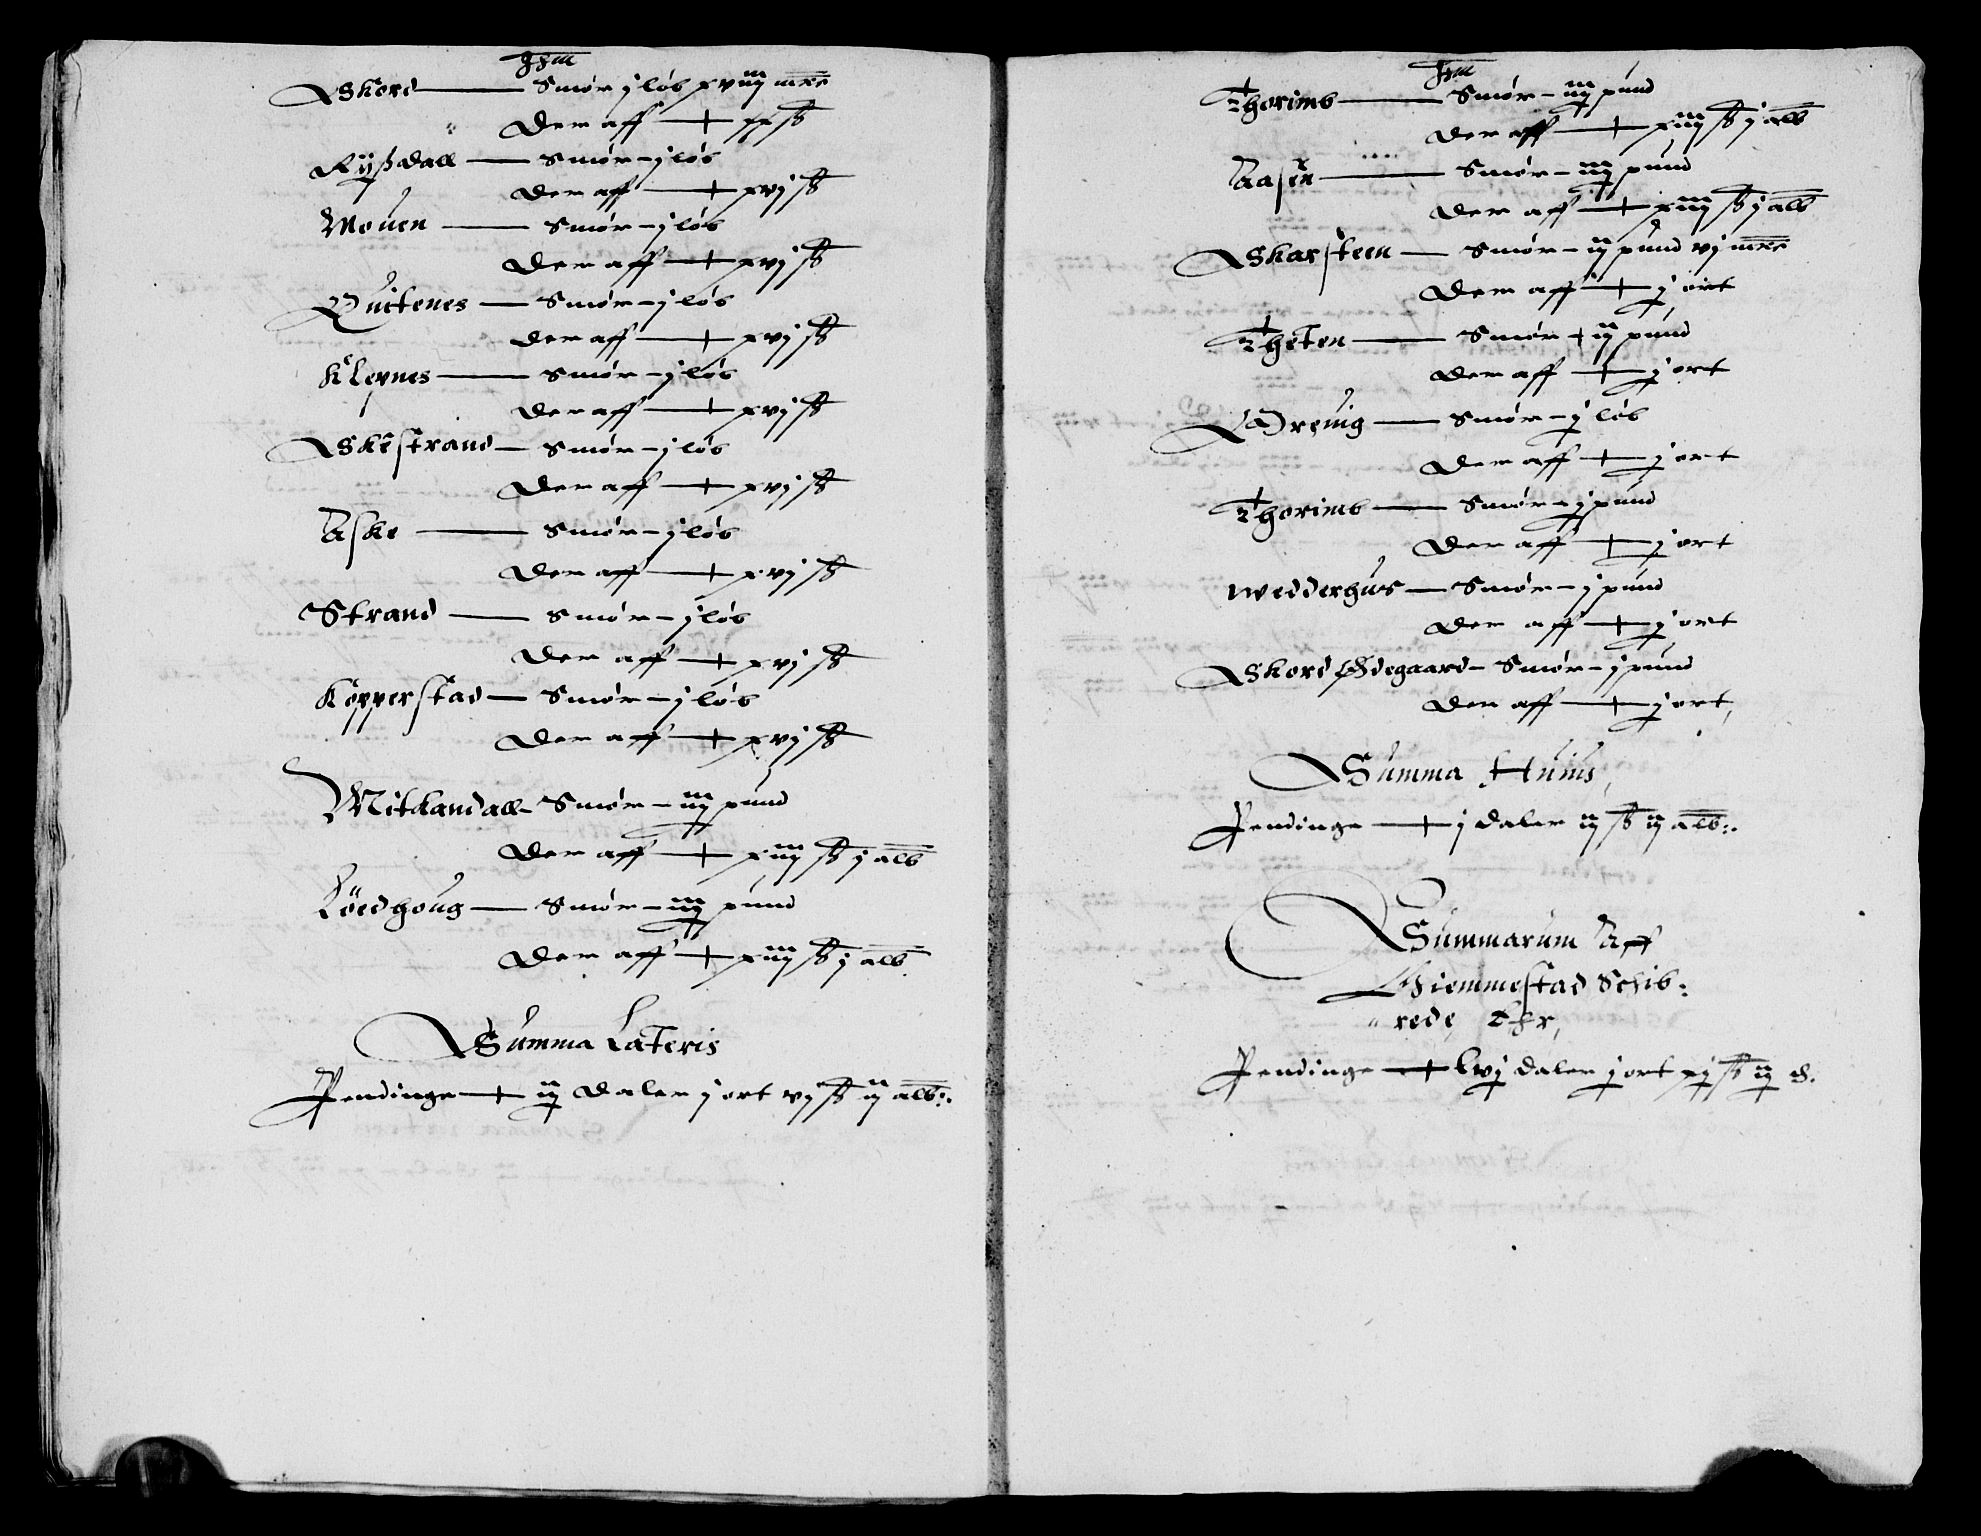 Skord — Smør j løb xviij mrc
Der aff — xx ß
Rÿßdall — Smør – j løb
Der aff — xvj ß
Mouen — Smør – j løb
Der aff — xvj ß
Quitenes — Smør – j løb
Der aff — xvj ß
Klepnes — Smør – j løb
Der aff — xvj ß
Skestrand — Smør – j løb
Der aff — xvj ß
Aske — Smør – j løb
Der aff — xvj ß
Strand — Smør – j løb
Der aff — xvj ß
Kopperstad — Smør – j løb
Der aff — xvj ß
Mitlandall – Smør – iiij pund
Der aff — xiiij ß j alb
Löedhoug — Smør – iiij pund
Der aff — xiiij ß j alb
Summa Lateris
Pendinge — iij daler j ort vj ß ij alb:.
Thorims — Smør – iiij pund
Der aff — xiiij ß j alb
Aasen — Smør – iiij pund
Der aff — xiiij ß j alb
Skarsteen — Smør – ij pund vj mrc
Der aff — j ort
Theten — Smør – ij pund
Der aff — j ort
Der aff — j ort
Thorims — Smør – j pund
Der aff — j ort
Wedderhus — Smør – j pund
Der aff — j ort
Skord Ødegaard – Smør – j pund
Der aff — j ort,
Summa Huius,
Pendinge — j daler ij ß ij alb:.
Summarum Aff
Giemmestad Schib:
rede Ehr,
Pendinge — lvj daler j ort xj ß ij d.